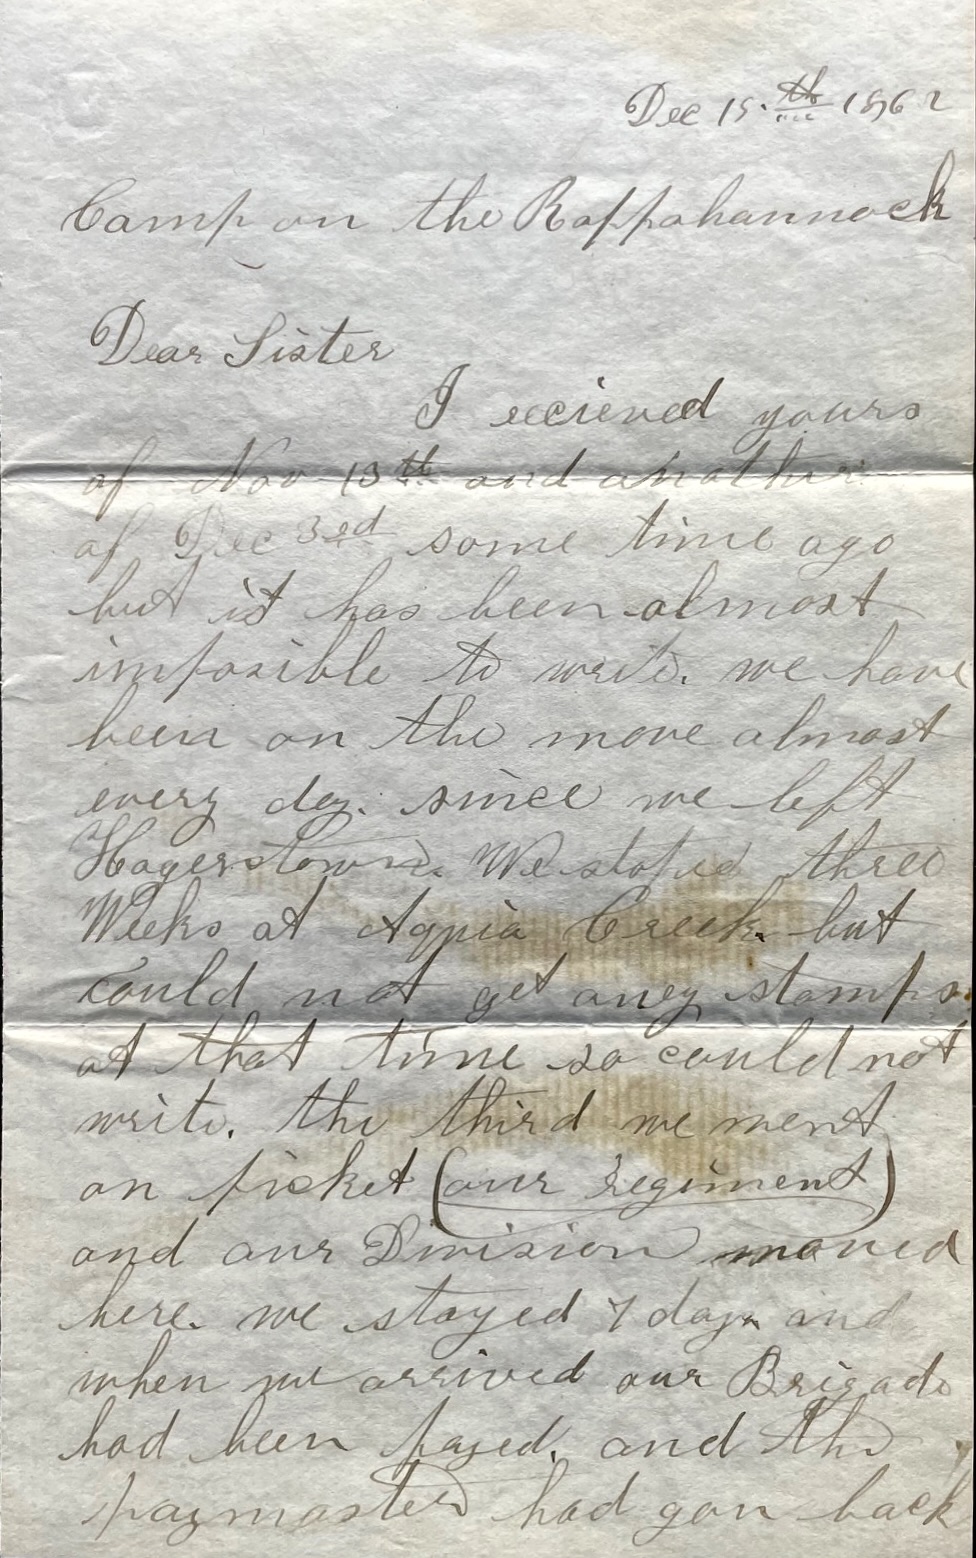 Dec 15.th 1862
Camp on the Rappahannock
Dear Sister
I recieved yours
of Nov 13th and another
of Dec 3ed some time ago
but it has been almost
imposible to write. we have
been on the move almost
every day. since we left
Hagerstown. We stoped three
Weeks at Aquia Creek. but
could not get aney stamps
at that time so could not
write. the third we went
on picket (our regiment)
and our Division moved
here. we stayed 7 days and
when we arrived our Brigade
had been payed. and the
paymaster had gon back